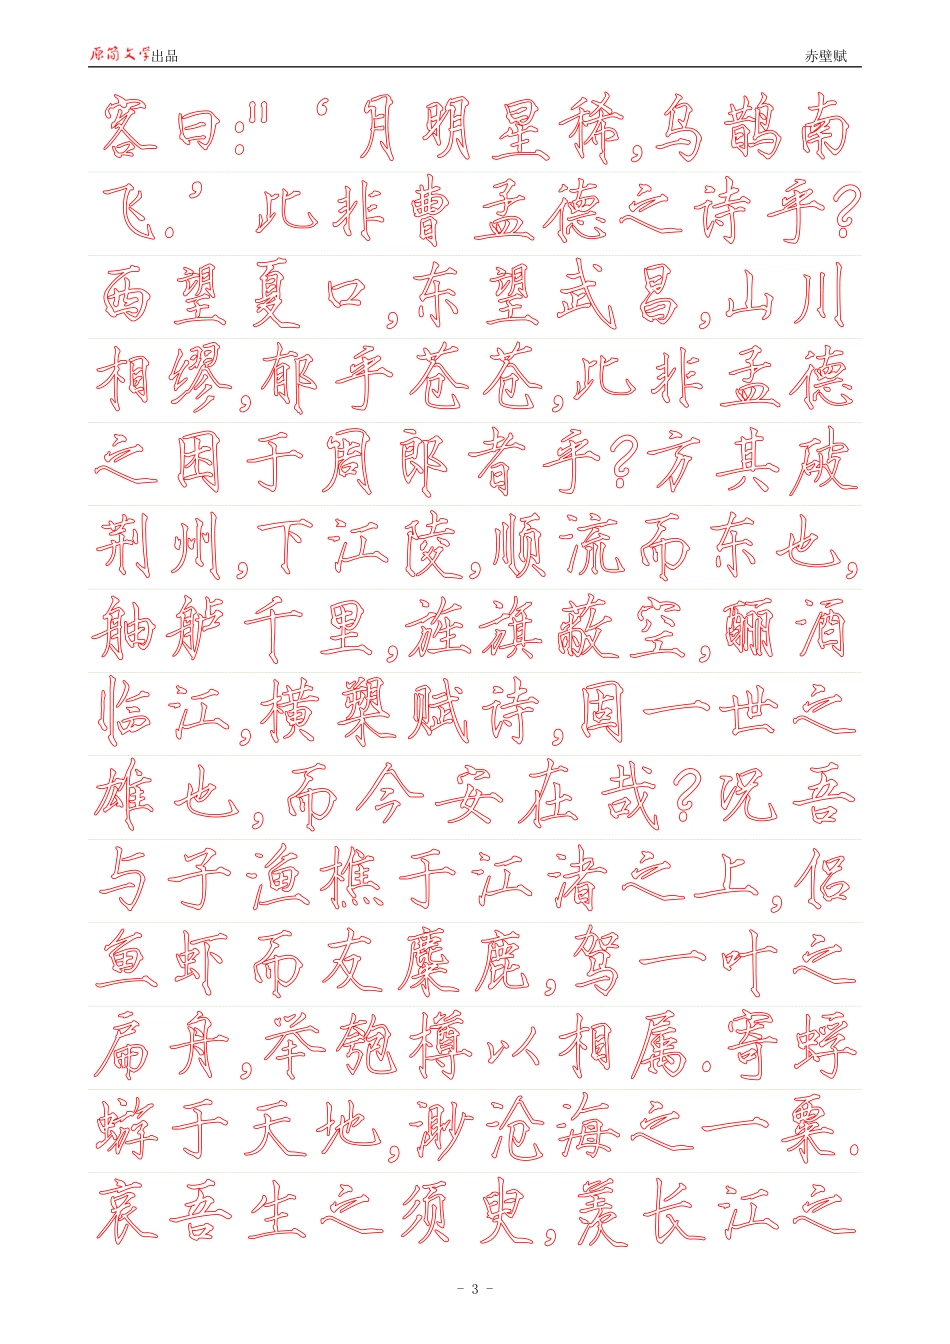 原简文学出品 赤壁赋
客曰:"‘月明星稀,乌鹊南
飞.’此非曹孟德之诗乎?
西望夏口,东望武昌,山川
相缪,郁乎苍苍,此非孟德
之困于周郎者乎?方其破
荆州,下江陵,顺流而东也,
舳舻千里,旌旗蔽空,酾酒
临江,横槊赋诗,固一世之
雄也,而今安在哉?况吾
与子渔樵于江渚之上,侣
鱼虾而友麋鹿,驾一叶之
扁舟,举匏樽以相属.寄蜉
蝣于天地,渺沧海之一粟.
哀吾生之须臾,羡长江之
- 3 -